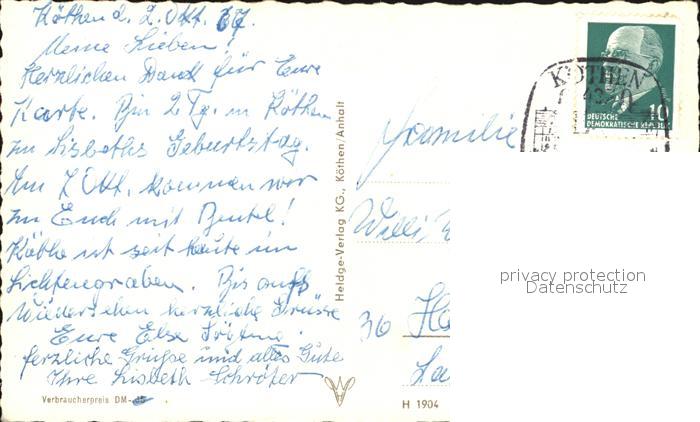 Köthen d. 2. Okt. 67.
Meine Lieben!
Herzlichen Dank für Eure
Karte. Bin 2 Tg. in Köthen
zu Lisbeths Geburtstag.
Am 7 Okt. kommen wir
zu Euch mit Beutel!
Käthe ist seit heute im
Lichtengraben. Bis aufs
Wiedersehen herzliche Grüsse
Eure Else
Herzliche Grüsse und alles Gute
Ihre Lisbeth Schröter
Verbraucherpreis DM
Heldge-Verlag KG., Köthen/Anhalt
H 1904
Familie
Willi
36
KÖTHEN
10
DEUTSCHE
DEMOKRATISCHE REPUBLIK
privacy protection
Datenschutz